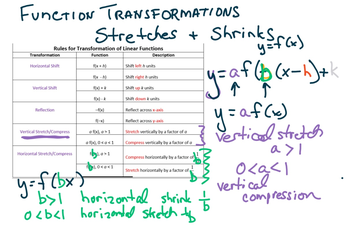 FUNCTION TRANSFORMATIONS
Stretches + Shrinks
y=f(x)
Rules for Transformation of Linear Functions
Transformation Function Description
Horizontal Shift f(x + h) Shift left h units
f(x - h) Shift right h units
Vertical Shift f(x) + k Shift up k units
f(x) - k Shift down k units
Reflection -f(x) Reflect across x-axis
f(-x) Reflect across y-axis
Vertical Stretch/Compress a·f(x), a > 1 Stretch vertically by a factor of a
a·f(x), 0 < a < 1 Compress vertically by a factor of a
Horizontal Stretch/Compress Compress horizontally by a factor of
Stretch horizontally by a factor of
y=af(b(x-h))+k
y=af(x)
vertical stretch
a>1
0<a<1
vertical
compression
y=f(bx)
b>1 horizontal shrink 1/b
0<b<1 horizontal stretch